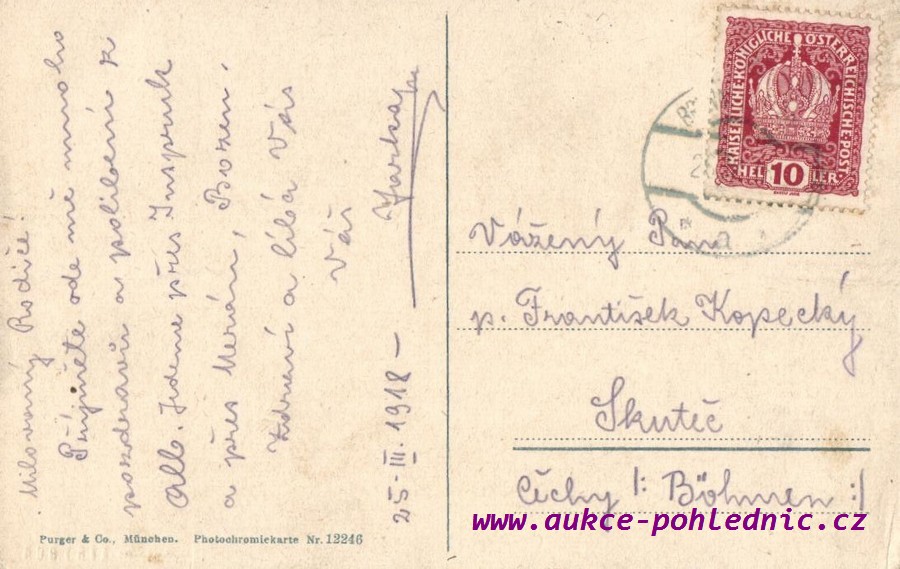 Milovaný Rodiče!
Přijměte ode mě mnoho
pozdravů a políbení z
Alb. Jedeme přes Inspruk
a přes Merán, Bozen.
Zdraví a líbá Vás
Váš
Jarka
25-III. 1918 -
KAISERLICHE KÖNIGLICHE ÖSTERREICHISCHE POST
HELLER
10
Vážený Pan
p. František Kopecký
Skuteč
Čechy /: Böhmen :/
www.aukce-pohlednic.cz
Purger & Co., München. Photochromiekarte Nr. 12246